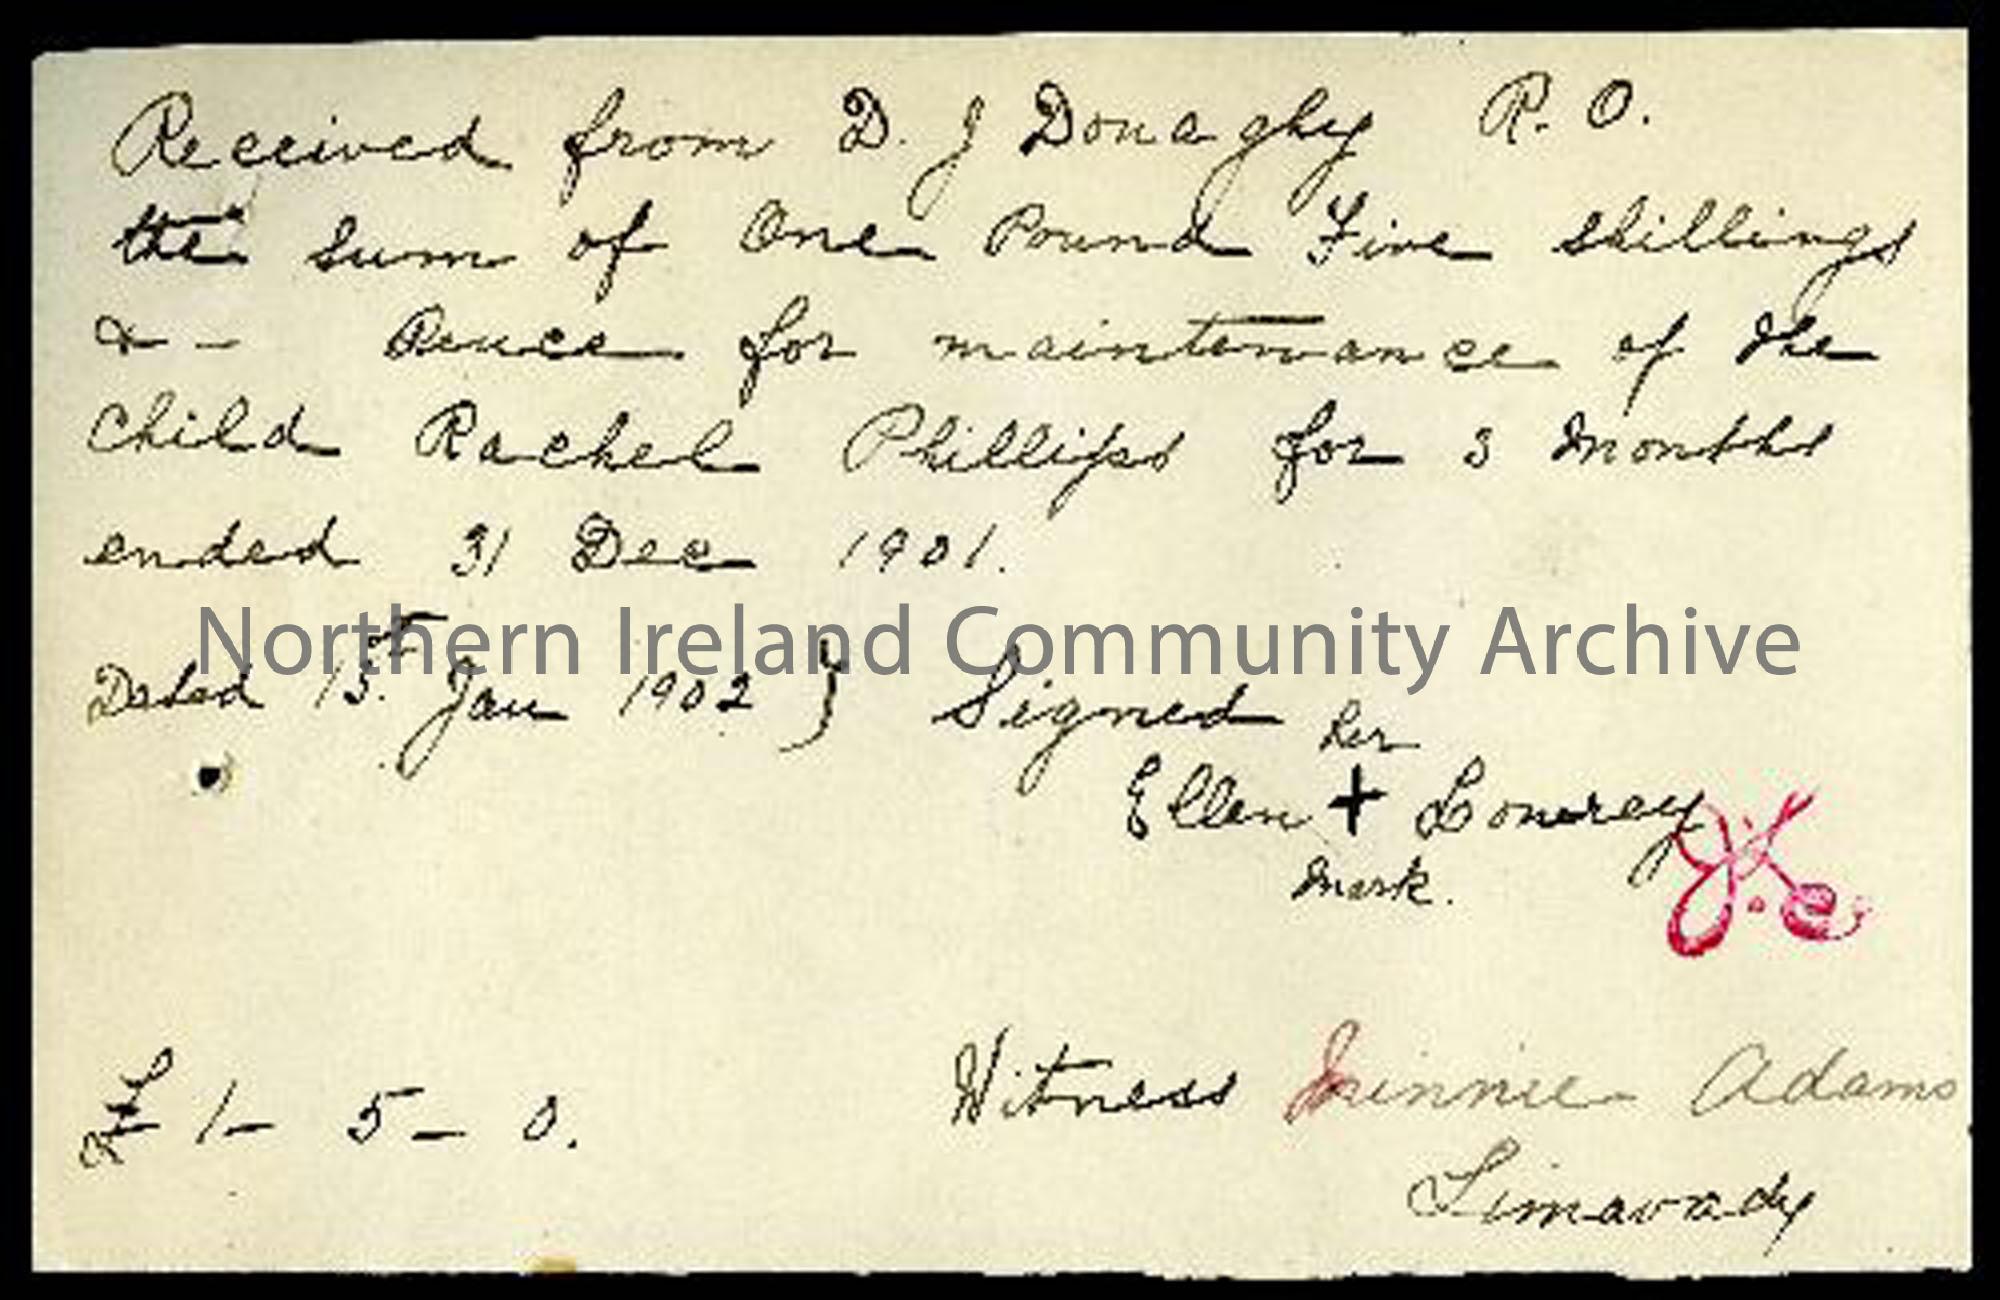 Received from D. J Donaghy R. O.
the sum of One Pound Five shillings
& - Pence for maintenance of the
Child Rachel Phillips for 3 months
ended 31 Dec 1901.
Northern Ireland Community Archive
Dated 15th Jan 1902 } Signed
her
Ellen + Lowrey
mark.
£ 1 - 5 - 0.
Witness Minnie Adams
Limavady